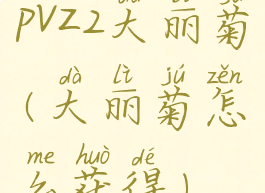 pVZ2大丽菊
dà lì jú zěn
(大丽菊怎
me huò dé
么获得)